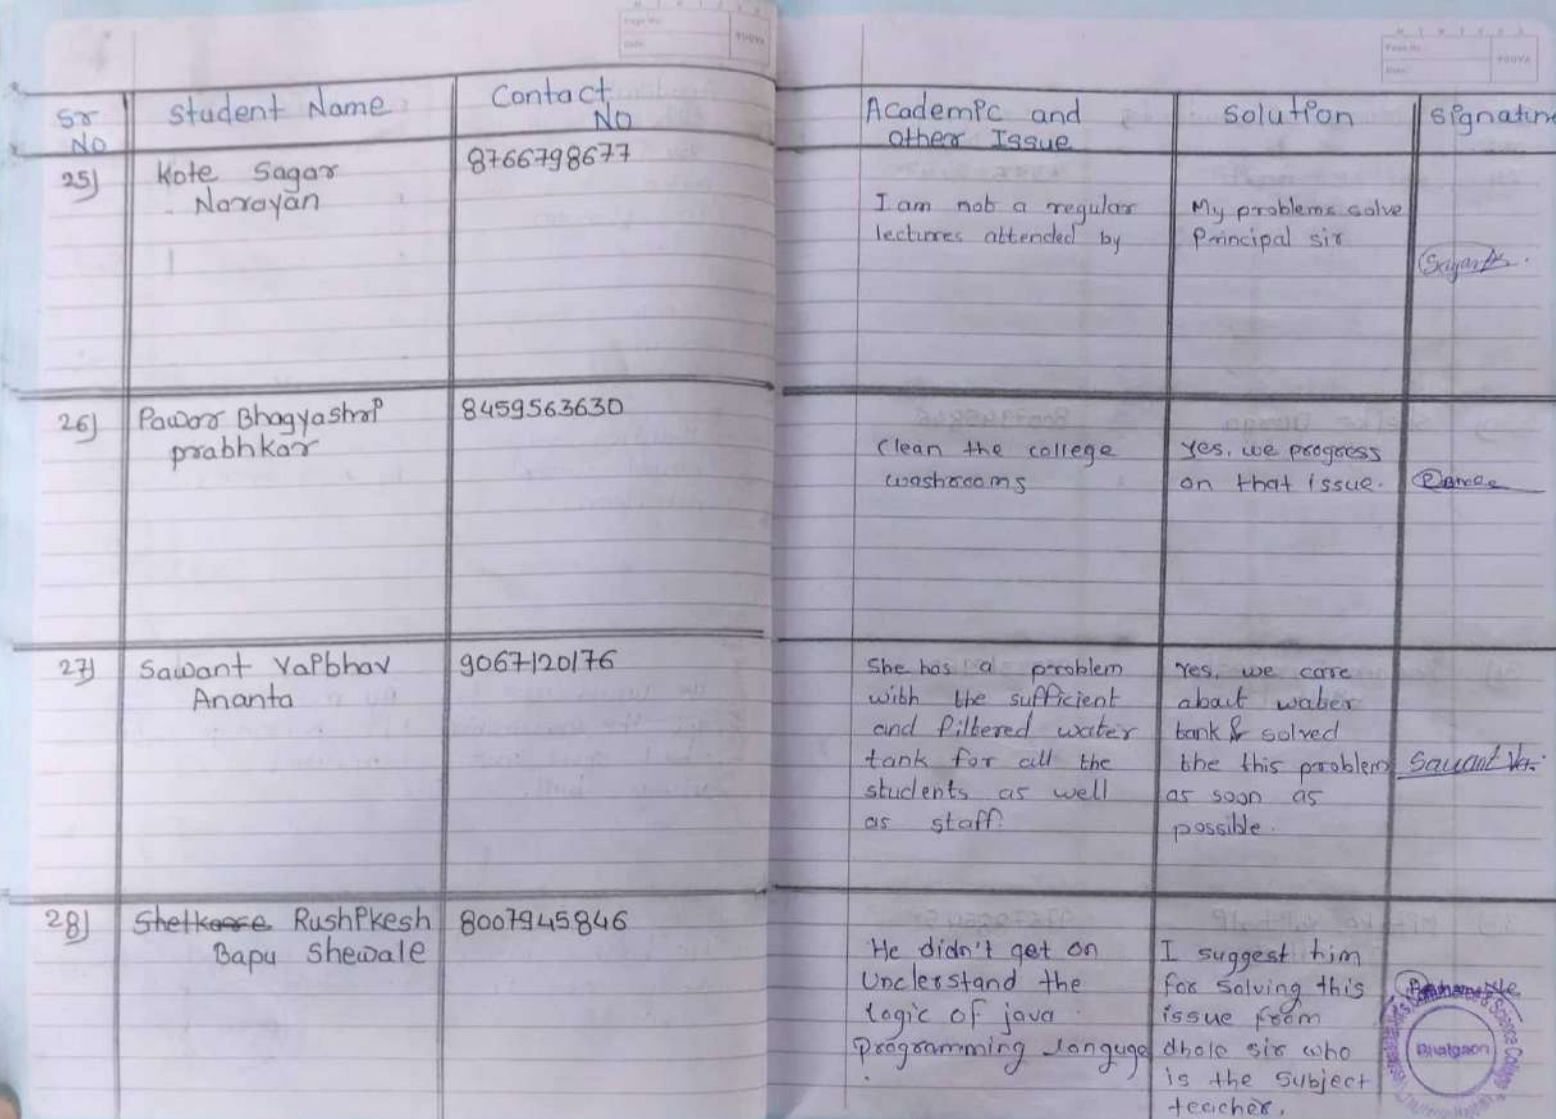 Sr No
Student Name
Contact No
Academic and other Issue
Solution
Signature
25)
Kote Sagar
Narayan
8766798677
I am not a regular
lectures attended by
My problems solve
Principal sir
26)
Pawar Bhagyashri
prabhkar
8459563630
Clean the college
washrooms
Yes, we progress
on that issue.
27)
Sawant Vaibhav
Ananta
9067120176
She has a problem
with the sufficient
and filtered water
tank for all the
students as well
as staff.
Yes, we care
about water
tank & solved
the this problem
as soon as
possible.
28)
Shetkare Rushikesh
Bapu Shewale
8007945846
He didn't get on
Understand the
logic of java
programming languge
I suggest him
for solving this
issue from
dhole sir who
is the subject
teacher.
Bhatgaon